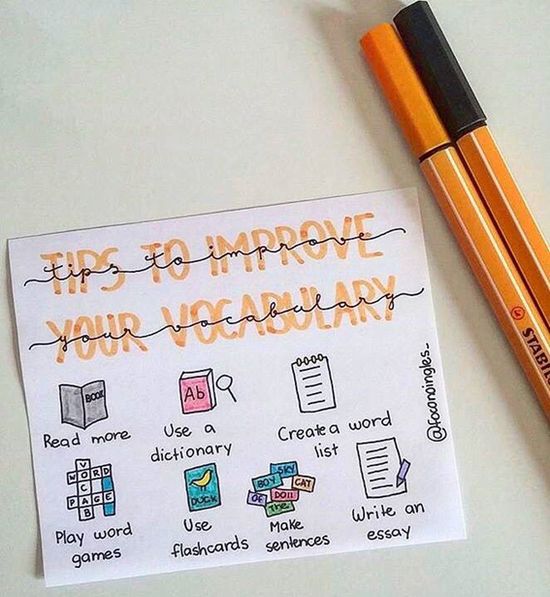 TIPS TO IMPROVE
tips to improve
YOUR VOCABULARY
your vocabulary
BOOK
Read more
Ab
Use a
dictionary
Create a word
list
VOCAB
WORD
PAGE
Play word
games
DUCK
Use
flashcards
SKY
BOY
CAT
OF
DOLL
The
Make
sentences
Write an
essay
@foconoingles_
STABIL